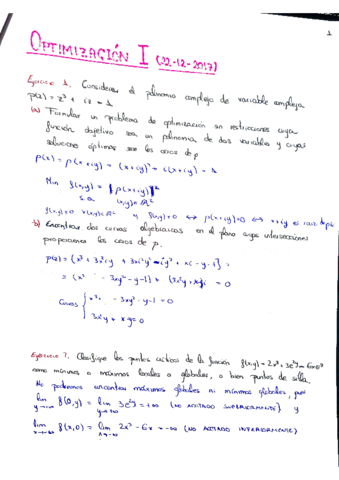 1
OPTIMIZACIÓN I (22-12-2017)
Ejercicio 1. Considera el polinomio complejo de variable compleja
p(z) = z³ + iz - 1
(a) Formular un problema de optimización sin restricciones cuya
función objetivo sea un polinomio de dos variables y cuyas
soluciones óptimas sean los ceros de p
p(z) = p(x+iy) = (x+iy)³ + i(x+iy) - 1
Min f(x,y) = |p(x+iy)|²
s.a. (x,y)∈ℝ²
f(x,y)≥0 ∀(x,y)∈ℝ² y f(x,y)=0 ⟺ p(x+iy)=0 ⟺ x+iy es raiz de p
b) Encontrar dos curvas algebraicas en el plano cuyas intersecciones
proporcionen los ceros de p.
p(z) = (x³ + 3x²iy + 3xi²y² - iy³ + xi - y - 1) =
= (x³ - 3xy² - y - 1) + (3x²y + x) = 0
Curvas { x³ - 3xy² - y - 1 = 0
3x²y + x = 0
Ejercicio 2. Clasifique los puntos críticos de la función f(x,y) = 2x³ + 3e²ʸ - 6xeʸ
como mínimos o máximos locales o globales, o bien puntos de silla.
No podremos encontrar máximos globales ni mínimos globales, pues
lim f(0,y) = lim 3e²ʸ = +∞ (NO ACOTADO SUPERIORMENTE) y
lim f(x,0) = lim 2x³ - 6x = -∞ (NO ACOTADO INFERIORMENTE)